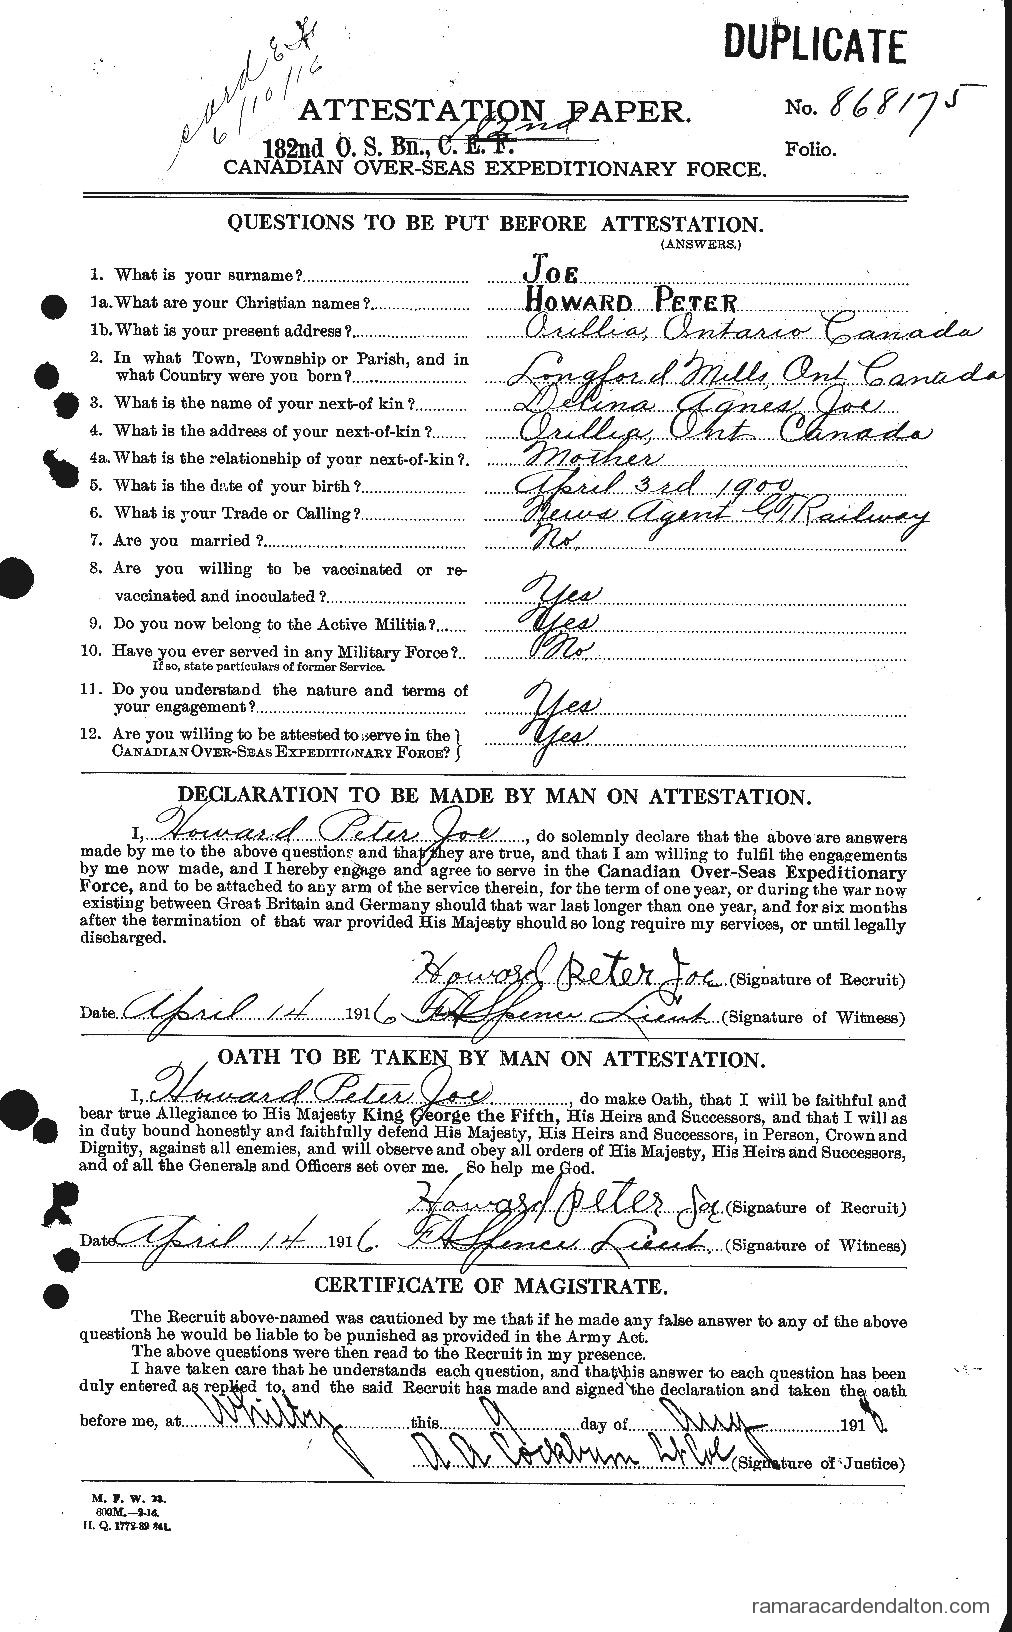 DUPLICATE
card E H
6/10/16
ATTESTATION PAPER.
No. 868175
182nd
182nd O. S. Bn., C. E. F.
Folio.
CANADIAN OVER-SEAS EXPEDITIONARY FORCE.
QUESTIONS TO BE PUT BEFORE ATTESTATION.
(ANSWERS.)
1. What is your surname? JOE
1a. What are your Christian names? HOWARD PETER
1b. What is your present address? Orillia, Ontario Canada
2. In what Town, Township or Parish, and in
what Country were you born? Longford Mills, Ont Canada
3. What is the name of your next-of kin? Delina Agnes Joe
4. What is the address of your next-of-kin? Orillia, Ont Canada
4a. What is the relationship of your next-of-kin? Mother
5. What is the date of your birth? April 3rd 1900
6. What is your Trade or Calling? News Agent GTRailway
7. Are you married? No.
8. Are you willing to be vaccinated or re-
vaccinated and inoculated? Yes
9. Do you now belong to the Active Militia? Yes
10. Have you ever served in any Military Force? No
If so, state particulars of former Service.
11. Do you understand the nature and terms of
your engagement? Yes
12. Are you willing to be attested to serve in the }
CANADIAN OVER-SEAS EXPEDITIONARY FORCE? } Yes
DECLARATION TO BE MADE BY MAN ON ATTESTATION.
I, Howard Peter Joe, do solemnly declare that the above are answers
made by me to the above questions and that they are true, and that I am willing to fulfil the engagements
by me now made, and I hereby engage and agree to serve in the Canadian Over-Seas Expeditionary
Force, and to be attached to any arm of the service therein, for the term of one year, or during the war now
existing between Great Britain and Germany should that war last longer than one year, and for six months
after the termination of that war provided His Majesty should so long require my services, or until legally
discharged.
Howard Peter Joe (Signature of Recruit)
Date April 14 1916 FA Spence Lieut (Signature of Witness)
OATH TO BE TAKEN BY MAN ON ATTESTATION.
I, Howard Peter Joe, do make Oath, that I will be faithful and
bear true Allegiance to His Majesty King George the Fifth, His Heirs and Successors, and that I will as
in duty bound honestly and faithfully defend His Majesty, His Heirs and Successors, in Person, Crown and
Dignity, against all enemies, and will observe and obey all orders of His Majesty, His Heirs and Successors,
and of all the Generals and Officers set over me. So help me God.
Howard Peter Joe (Signature of Recruit)
Date April 14 1916. FA Spence Lieut. (Signature of Witness)
CERTIFICATE OF MAGISTRATE.
The Recruit above-named was cautioned by me that if he made any false answer to any of the above
questions he would be liable to be punished as provided in the Army Act.
The above questions were then read to the Recruit in my presence.
I have taken care that he understands each question, and that his answer to each question has been
duly entered as replied to, and the said Recruit has made and signed the declaration and taken the oath
before me, at Whitby this 9 day of Aug 1916
A A Cockburn Lt Col (Signature of Justice)
M. F. W. 23.
600M.—2-16.
H. Q. 1772-39 841.
ramaracardendalton.com